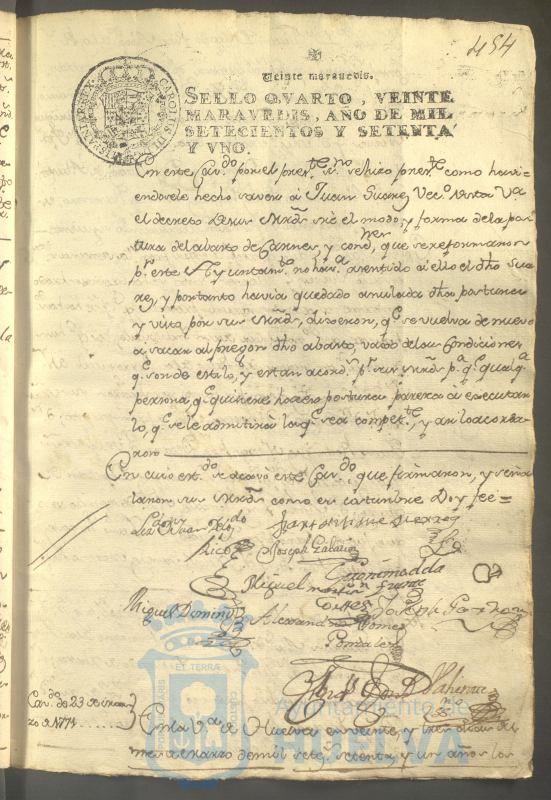 454
Veinte marauedis.
SELLO QVARTO, VEINTE
MARAVEDIS, AÑO DE MIL
SETECIENTOS Y SETENTA
Y VNO.
CAROLUS III
En este Cav.do por el pres.te ss.no se hizo pres.te como havi-
endosele hecho saver â Juan Suarez Vec.o de esta V.a
el decreto de sus Mrds sre el modo, y forma de la pos-
tura del abasto de Carnes, y cond.nes, que se reformaron
p.r este Ayuntam.to no hav.a asentido â ello el dho Sua
rez, y por tanto havia quedado anulada dha postura:
y visto por sus Mrds, dixeron, q.e se vuelva de nuevo
a sacar al pregon dho abasto, vajo de las Condiciones
q.e son de estilo, y estan acord.s p.r sus Mrds p.a q.e qualq.a
persona, q.e quisiere hacer postura parezca â executar
lo, q.e se le admitirá la q.e sea compet.te, y asi lo acorda-
ron
En cuio est.do se acavó este Cav.do, que firmaron, y seña
laron sus Mrds como es costumbre Doy fee =
Joseph
Miguel Martin
Geronimo de la
Miguel Domin
Cortes
Joseph Garzon
Alexandro Gomez
Cav.do de 23 de mar
zo de 1771
En la V.a de Huelva en veinte, y tres dias del
mes de Marzo de mil sete.s setenta, y un años los
ET TERRÆ
Ayuntamiento de
HUELVA